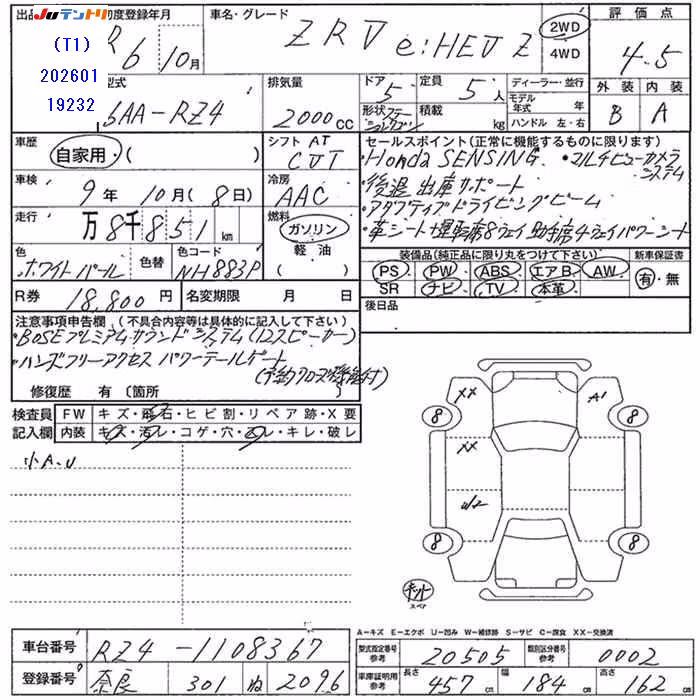 JUテントリ
(T1)
202601
19232
初度登録年月
R6 10月
車名・グレード
ZRV e:HEV Z
2WD
4WD
評価点
4.5
外装 内装
B A
型式
6AA-RZ4
排気量
2000cc
ドア
5
定員
5人
形状
積載
kg
ディーラー・並行
モデル年式 年
ハンドル 左・右
車歴
自家用・( )
シフト AT
CVT
車検
9年 10月(8日)
冷房
AAC
走行
万8千851km
燃料
ガソリン
軽油
( )
色
ホワイトパール
色替
色コード
NH883P
R券
18,800円
名変期限 月 日
セールスポイント(正常に機能するものに限ります)
・Honda SENSING ・マルチビューカメラシステム
・後退出庫サポート
・アダプティブドライビングビーム
・革シート 運転席8ウェイ 助手席4ウェイパワーシート
装備品(純正品に限り丸をつけて下さい)
PS PW ABS エアB AW
SR ナビ TV 本革
新車保証書
有・無
後日品
注意事項申告欄(不具合内容等は具体的に記入して下さい)
・BOSEプレミアムサウンドシステム(12スピーカー)
・ハンズフリーアクセスパワーテールゲート
(予約クローズ機能付)
修復歴 有 〔箇所 〕
検査員記入欄
FW キズ・飛石・ヒビ割・リペア跡・X要
内装 キズ・汚レ・コゲ・穴・凹レ・キレ・破レ
小A.U
XX
A1
XX
W2
8
8
8
8
キット
スペア
A-キズ E-エクボ U-凹み W-補修跡 S-サビ C-腐食 XX-交換済
車台番号
RZ4-1108367
登録番号
奈良 301 ね 2096
型式指定番号 参考
20505
類別区分番号 参考
0002
車庫証明用 参考
長さ 457cm
幅 184cm
高さ 162cm